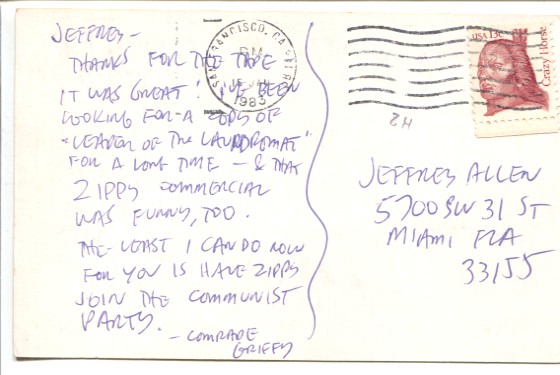 JEFFREY –
THANKS FOR THE TAPE
IT WAS GREAT! I'VE BEEN
LOOKING FOR A COPY OF
"LEADER OF THE LAUNDROMAT"
FOR A LONG TIME – & THAT
ZIPPY COMMERCIAL
WAS FUNNY, TOO.
THE LEAST I CAN DO NOW
FOR YOU IS HAVE ZIPPY
JOIN THE COMMUNIST
PARTY.
– COMRADE
GRIFFY
SAN FRANCISCO, CA
PM
1983
USA 13c
Crazy Horse
JEFFREY ALLEN
5700 SW 31 ST
MIAMI FLA
33155